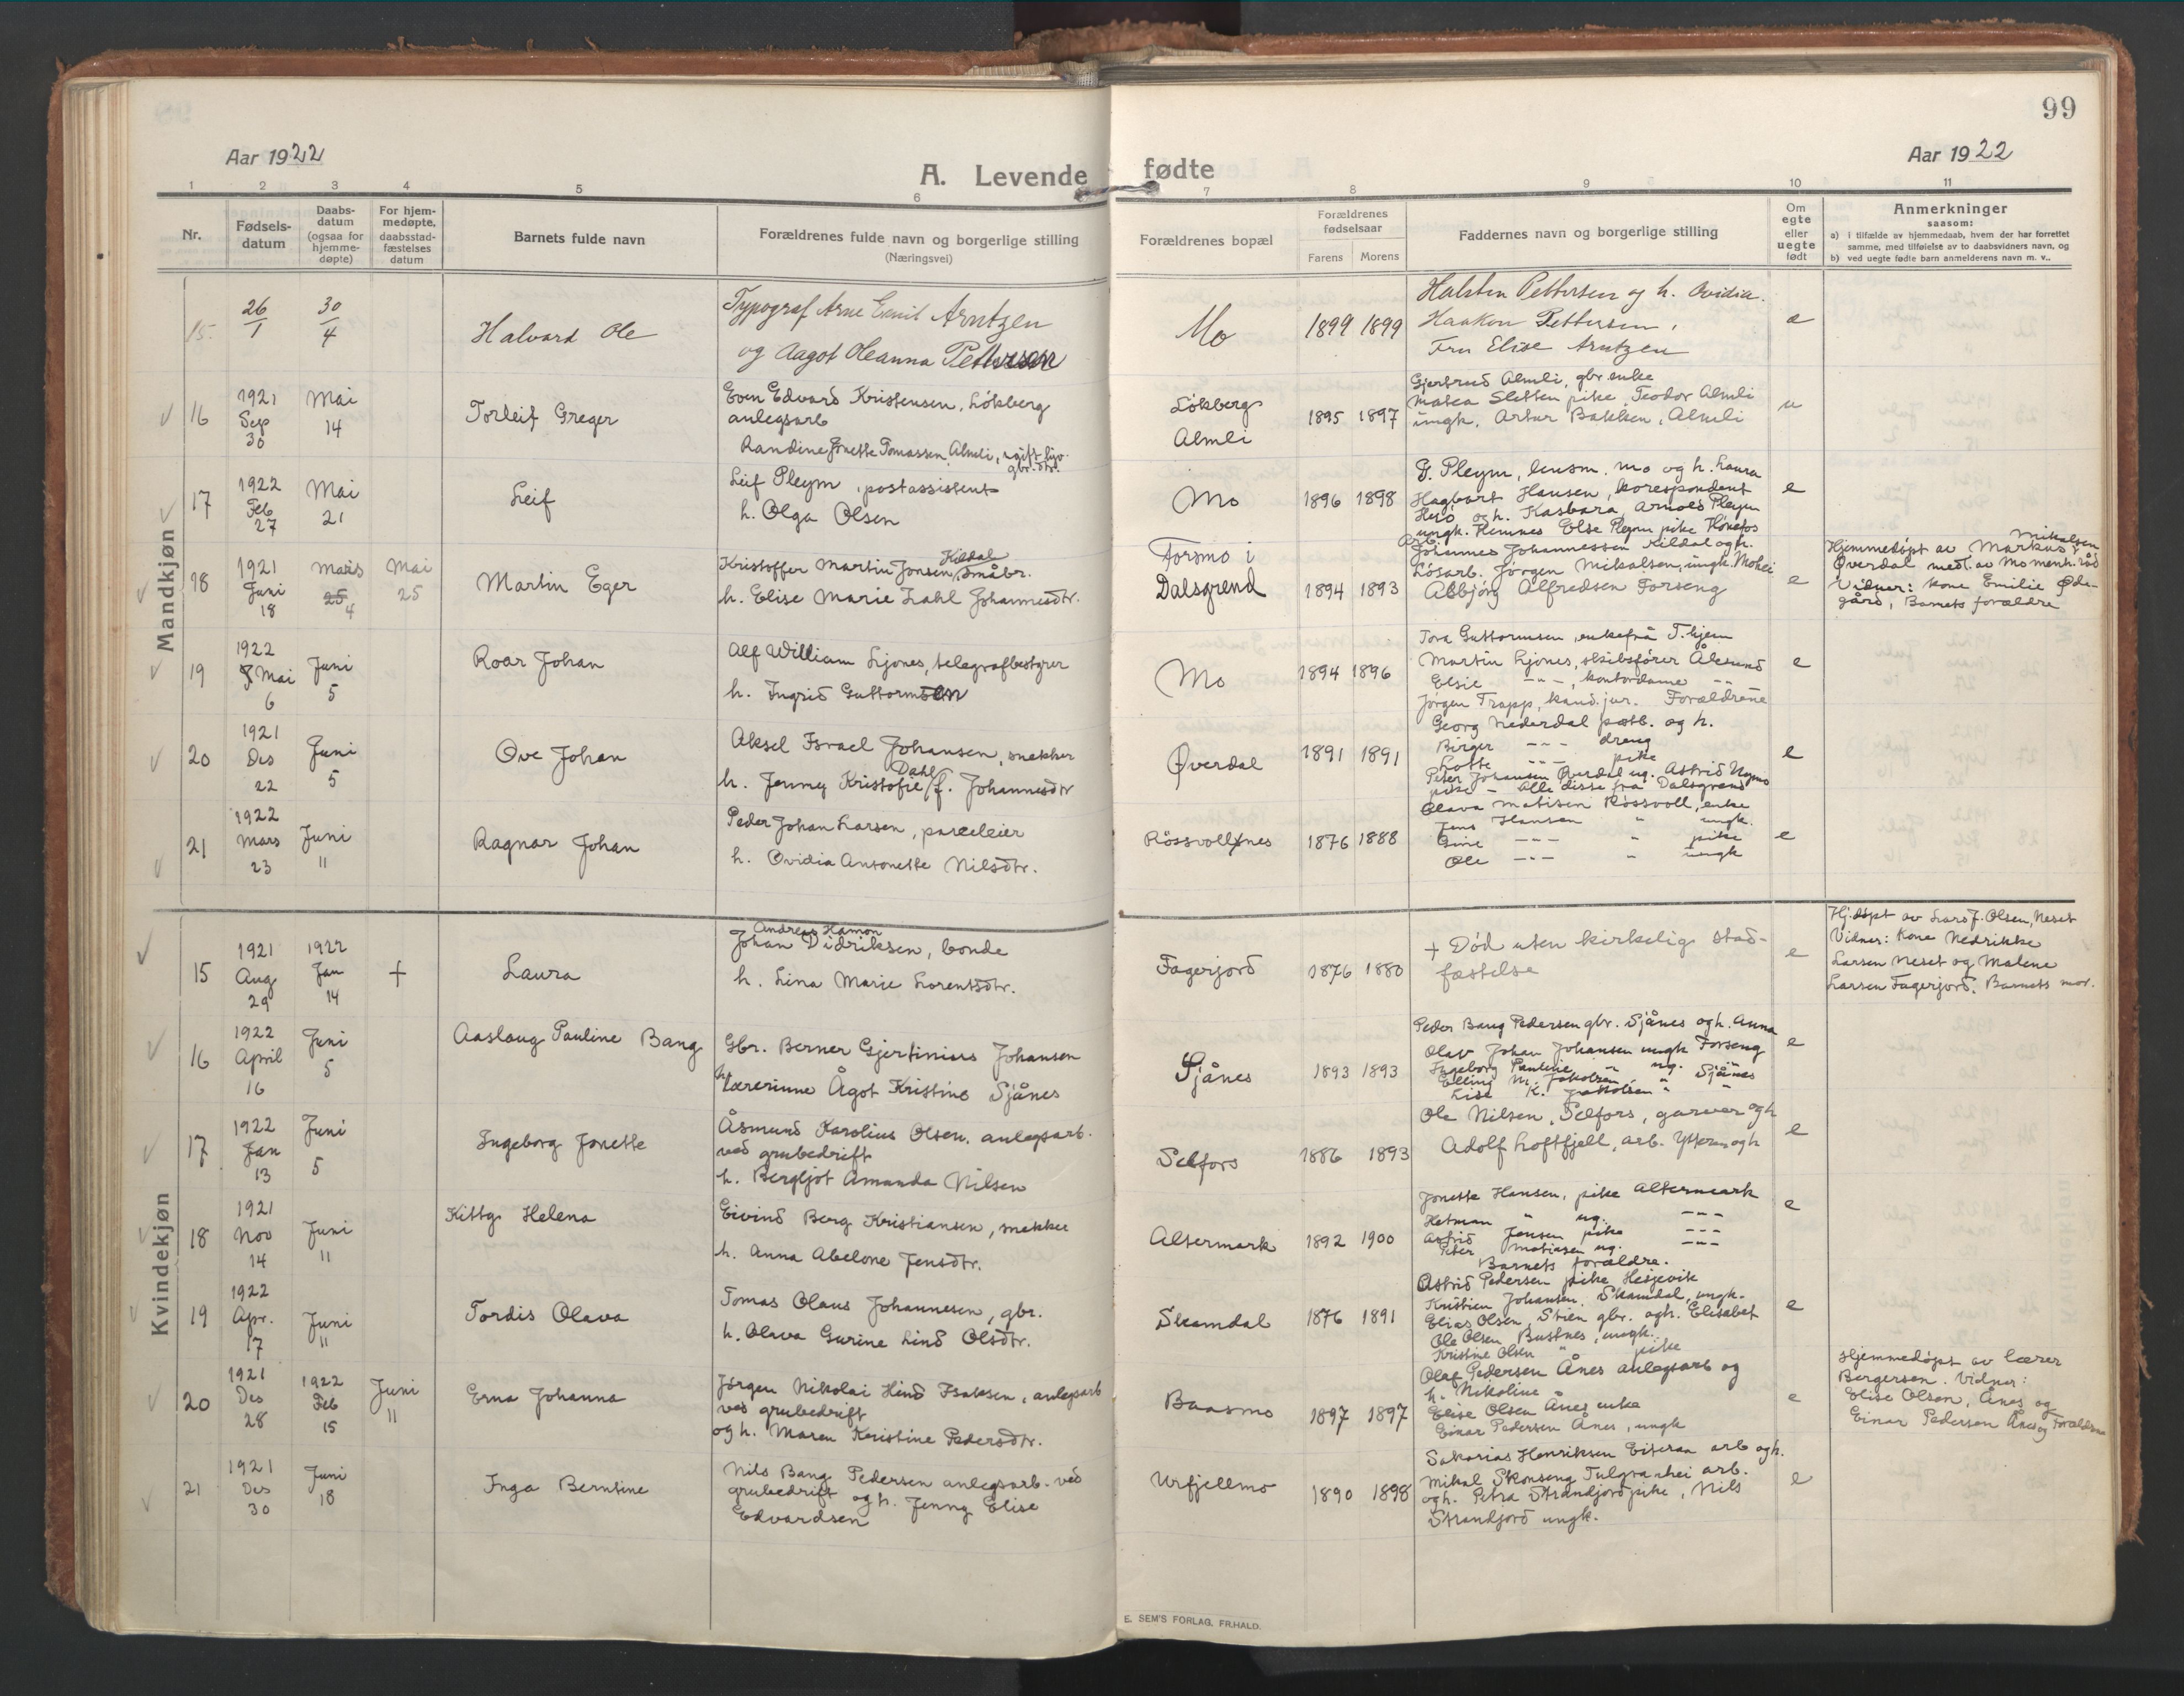 99
Aar 1922
Aar 1922
A. Levende fødte
1 2 3 4 5 6 7 8 9 10 11
Nr.
Fødselsdatum
Daabsdatum (ogsaa for hjemmedøpte)
For hjemmedøpte, daabsstadfæstelses datum
Barnets fulde navn
Forældrenes fulde navn og borgerlige stilling
(Næringsvei)
Forældrenes bopæl
Forældrenes fødselsaar
Farens Morens
Faddernes navn og borgerlige stilling
Om egte eller uegte født
Anmerkninger
saasom:
a) i tilfælde av hjemmedaab, hvem der har forrettet
samme, med tilføielse av to daabsvidners navn, og
b) ved uegte fødte barn anmelderens navn m. v..
Mandkjøn
15. 26/1 30/4 Halvard Ole
Typograf Arne Emil Arntzen
og Aagot Oleanna Pettersen
Mo 1899 1899
Halsten Pettersen og h. Ovidia.
Haakon Pettersen,
Fru Elise Arntzen
e
16 1921 Sep 30 Mai 14 Torleif Greger
Even Edvard Kristensen, Lökberg
anlegsarb
Randine Jonette Tomassen Almli, ugift
gbr.dtr.
Lökberg
Almli
1895 1897
Gjertrud Almli, gbr enke
Matea Sletten pike, Teodor Almli
ungk. Artur Bakken, Almli
u
17 1922 Feb 27 Mai 21 Leif
Leif Pleym, postassistent
h. Olga Olsen
Mo 1896 1898
D. Pleym, lensm. Mo og h. Laura
Hagbart Hansen, korespondent
og h. Kasbara, Arnold Pleym
ungk. Hemnes Else Pleym pike Hönefos
e
18 1921 Juni 18 Mars 25 4 Mai 25 Martin Eger
Kristoffer Martin Jonsen Kildal Småbr.
h. Elise Marie Lahl Johannesdtr.
Forsmo i
Dalsgrend
1894 1893
Arb.
Johannes Johannessen Kildal og h.
Lösarb. Jørgen Mikalsen, ungk. Mohei
Asbjörg Alfredsen Forseng
e
Hjemmedöpt av Markus Mikalsen
Øverdal medl. av Mo menh.råd
Vidner: kone Emilie Ødegård, Barnets forældre
19 1922 Mai 6 Juni 5 Roar Johan
Alf William Ljones, telegrafbestyrer
h. Ingrid Guttormsen
Mo 1894 1896
Tora Guttormsen, enkefrå T.hjem
Martin Ljones, skibsförer Ålesund
Elsie -"-, kontordame -"-
Jørgen Trapp, kand. jur. Forældrene
e
20 1921 Des 22 Juni 5 Ove Johan
Aksel Israel Johansen, snekker
h. Jenny Kristofie Dahl f. Johannesdtr
Øverdal 1891 1891
Georg Nederdal postb. og h.
Birger -"- dreng
Lotte -"- pike
Peter Johansen Øverdal ug. Astrid Nymo
pike - Alle disse fra Dalsgrend
e
21 1922 Mars 23 Juni 11 Ragnar Johan
Peder Johan Larsen, parceleier
h. Ovidia Antonette Nilsdtr.
Rössvollnes 1876 1888
Olava Matisen Rössvoll, enke
Jens Hansen " ungk.
Gine -"- " pike
Ole -"- " ungk
e
Kvindekjøn
15 1921 Aug 29 1922 Jan 14 + Laura
Andreas Hamon
Johan Didriksen, bonde
h. Lina Marie Lorentsdtr.
Fagerjord 1876 1880
+ Död uten kirkelig stadfæstelse
e
Hj.döpt av Lars J. Olsen, Neset
Vidner: Kone Nedrikke
Larsen Neset og Malene
Larsen Fagerjord. Barnets mor.
16 1922 April 16 Juni 5 Aaslaug Pauline Bang
Gbr. Berner Gjertinius Johansen
h. lærerinne Ågot Kristine Sjånes
Sjånes 1893 1893
Peder Bang Pedersen gbr. Sjånes og h. Anna
Olav Johan Johansen ungk Forseng
Ingeborg Pauline " ug. "
Elling M. Jakobsen " Sjånes
Lise K. Jakobsen " "
e
17 1922 Jan 13 Juni 5 Ingeborg Jonette
Åsmund Karolius Olsen, anlegsarb.
ved grubedrift
h. Bergljot Amanda Nilsen
Selfors 1886 1893
Ole Nilsen, Selfors, garver og h
Adolf Loftfjell, arb. Ytteren og h
e
18 1921 Nov 14 Juni 11 Kittg Helena
Eivind Berg Kristiansen, snekker
h. Anna Abelone Jensdtr.
Altermark 1892 1900
Jonette Hansen, pike Altermark
Herman " ug. -"-
Astrid Jensen pike -"-
Peter Matiasen ug. -"-
Barnets forældre.
e
19 1922 Apr. 17 Juni 11 Tordis Olava
Tomas Olaus Johannesen, gbr.
h. Olava Gurine Lind Olsdtr.
Skamdal 1876 1891
Astrid Pedersen pike Hesjevik
Kristian Johansen Skamdal, ungk.
Elias Olsen, Stien gbr. og h. Elisabet
Ole Olsen, Bustnes, ungk.
Kristine Olsen " pike
e
20 1921 Des 28 1922 Feb 15 Juni 11 Erna Johanna
Jörgen Nikolai Hind Isaksen, anlegsarb
ved grubedrift
og h. Maren Kristine Pedersdtr.
Baasmo 1897 1897
Olaf Pedersen Ånes anlegsarb og
h. Nikoline
Elise Olsen Ånes enke
Einar Pedersen Ånes, ungk
e
Hjemmedöpt av lærer
Bergersen. Vidner:
Elise Olsen, Ånes og
Einar Pedersen Ånes og Forældrene
21 1921 Des 30 Juni 18 Inga Berntine
Nils Bang Pedersen anlegsarb. ved
grubedrift og h. Jenny Elise
Edvardsen
Urfjellmo 1890 1898
Sakarias Henriksen Eiteraa arb og h.
Mikal Skonseng Tulgranhei arb.
og h. Petra Strandjord pike, Nils
Strandjord ungk.
e
E. SEM'S FORLAG, FR.HALD.